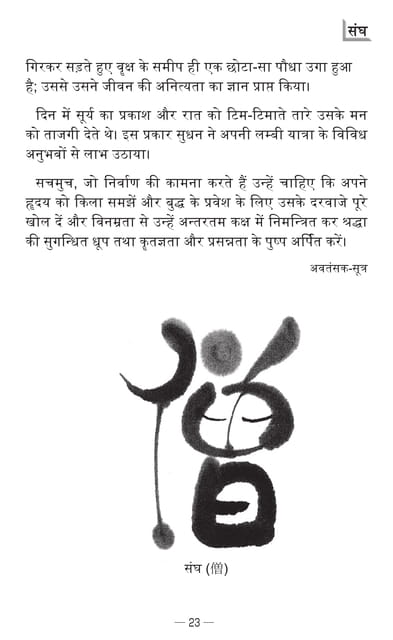 संघ
गिरकर सड़ते हुए वृक्ष के समीप ही एक छोटा-सा पौधा उगा हुआ
है; उससे उसने जीवन की अनित्यता का ज्ञान प्राप्त किया।
दिन में सूर्य का प्रकाश और रात को टिम-टिमाते तारे उसके मन
को ताजगी देते थे। इस प्रकार सुधन ने अपनी लम्वी यात्रा के विविध
अनुभबों से लाभ उठाया।
सचमुच, जो निर्वाण की कामना करते हैं उन्हें चाहिए कि अपने
हृदय को किला समझें और बुद्ध के प्रवेश के लिए उसके दरवाजे पूरे
खोल दें और विनम्रता से उन्हें अन्तरतम कक्ष में निमन्त्रित कर श्रद्धा
की सुगन्धित धूप तथा कृतज्ञता और प्रसन्नता के पुष्प अर्पित करें।
अवतंसक-सूत्र
僧
संघ (僧)
— 23 —